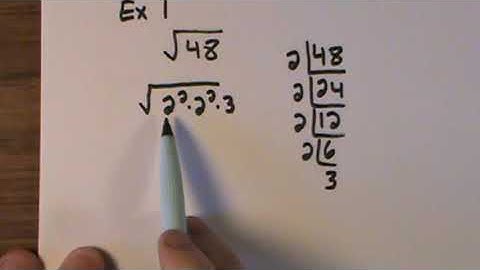 Ex 1
√48
√2²·2²·3
2 | 48
2 | 24
2 | 12
2 | 6
3